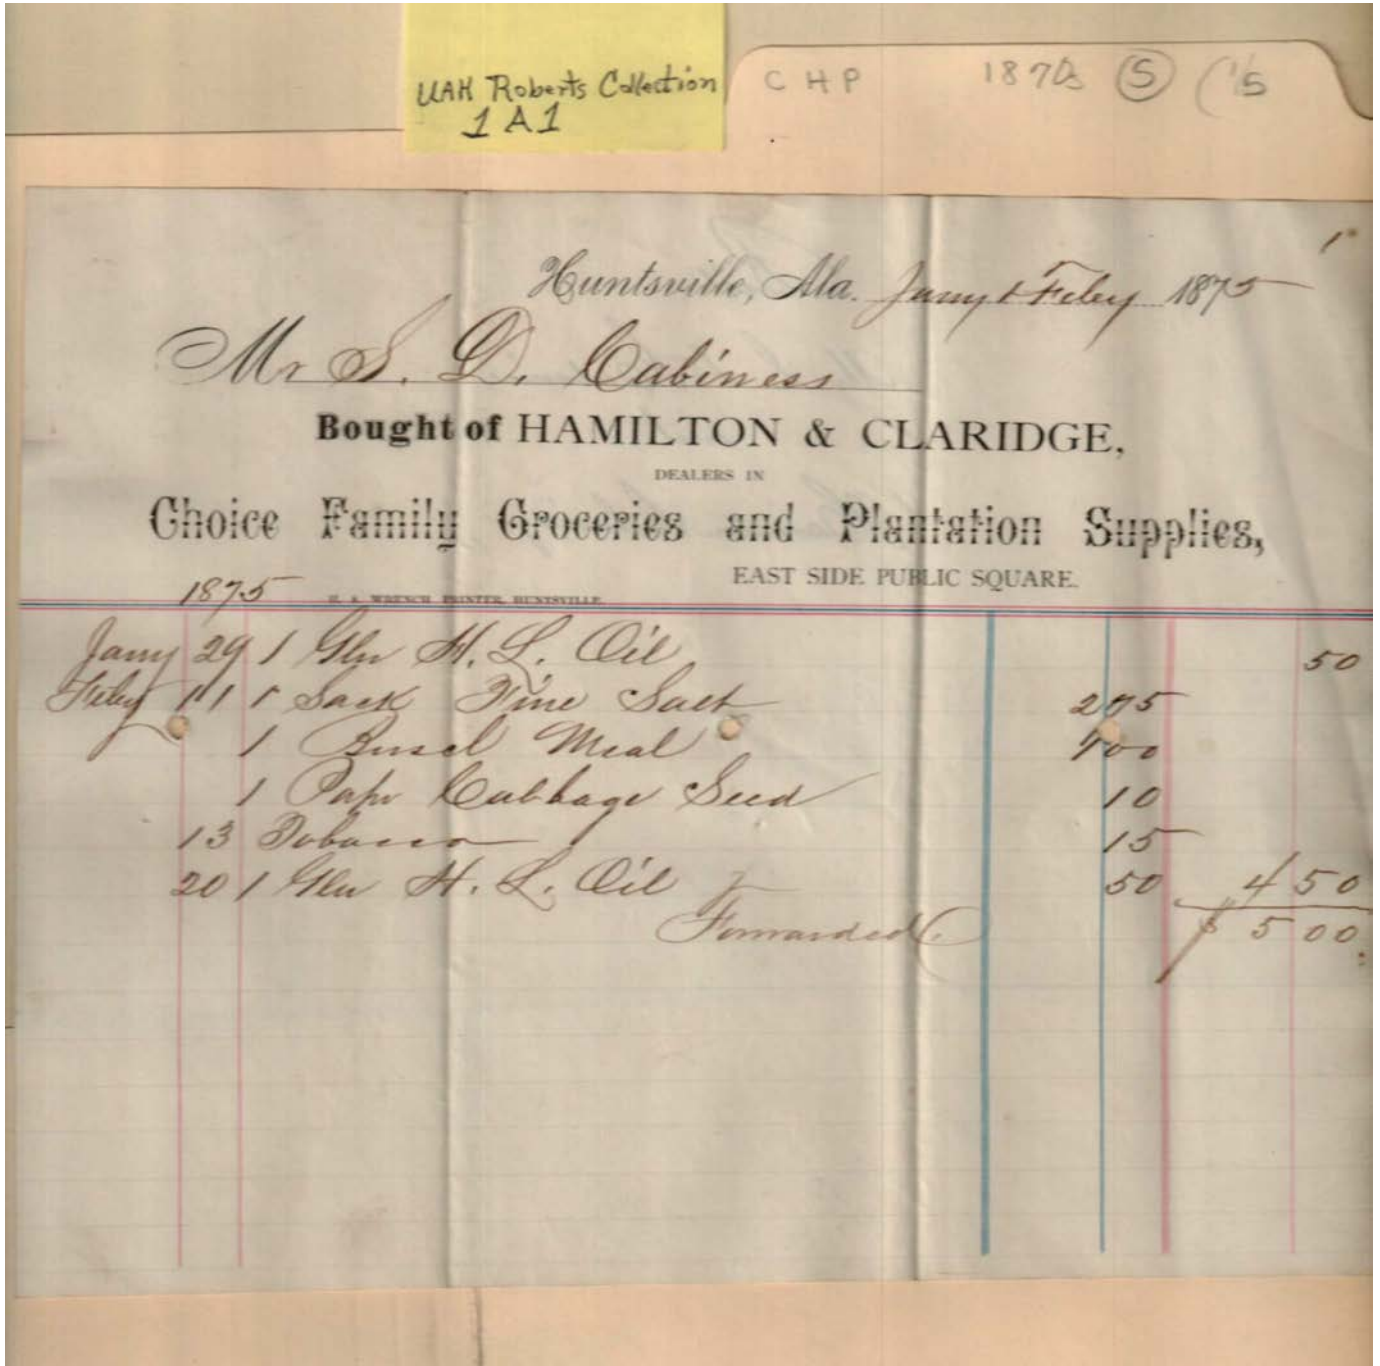 UAH Roberts Collection
1A1
CHP 1870s (5) (1/5
1
Huntsville, Ala. Jany & Feby 1875
Mr S. D. Cabiness
Bought of HAMILTON & CLARIDGE,
DEALERS IN
Choice Family Groceries and Plantation Supplies,
EAST SIDE PUBLIC SQUARE.
1875 WRENCH PRINTER, HUNTSVILLE.
Jany 29 1 Gln H. L. Oil 50
Feby 11 1 Sack Fine Salt 275
1 Busel Meal 100
1 Papr Cabbage Seed 10
13 Tobacco 15
20 1 Gln H. L. Oil 50 4 50
Forwarded $ 5 00